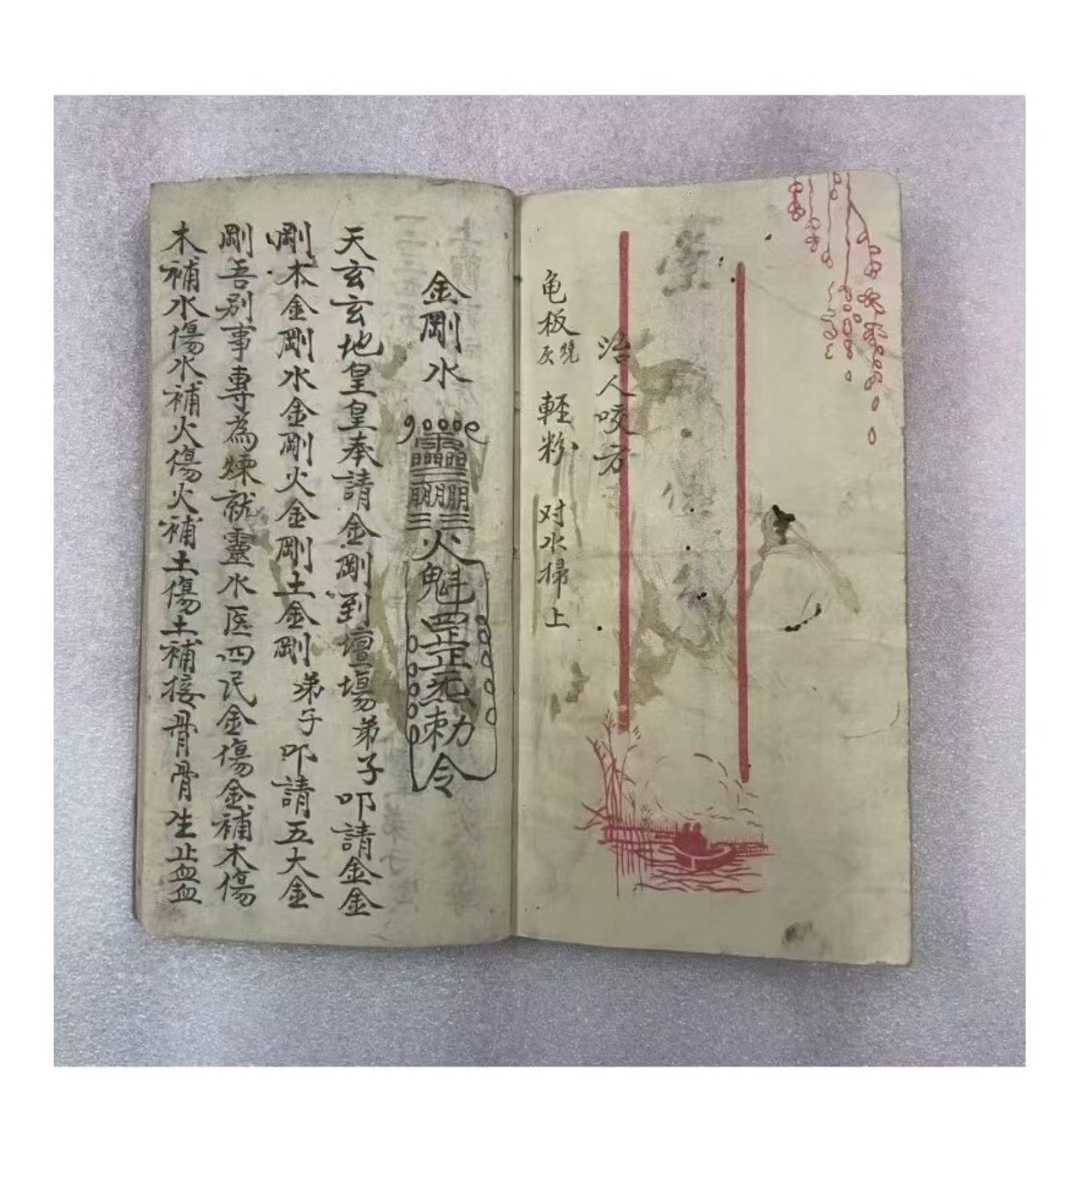 治人咬方
亀板烧灰 軽粉 对水掃上
金剛水
火魁罡勅令
天玄玄地皇皇奉請金剛到壇場弟子叩請金金
剛木金剛水金剛火金剛土金剛弟子叩請五大金
剛吾别事專為煉就靈水医四民金傷金補木傷
木補水傷水補火傷火補土傷土補接骨骨生止血血